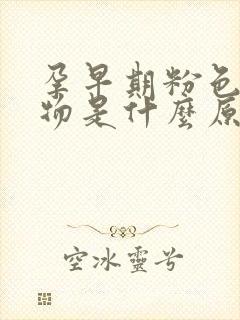 孕早期粉色
物是什麼原
空冰靈兮